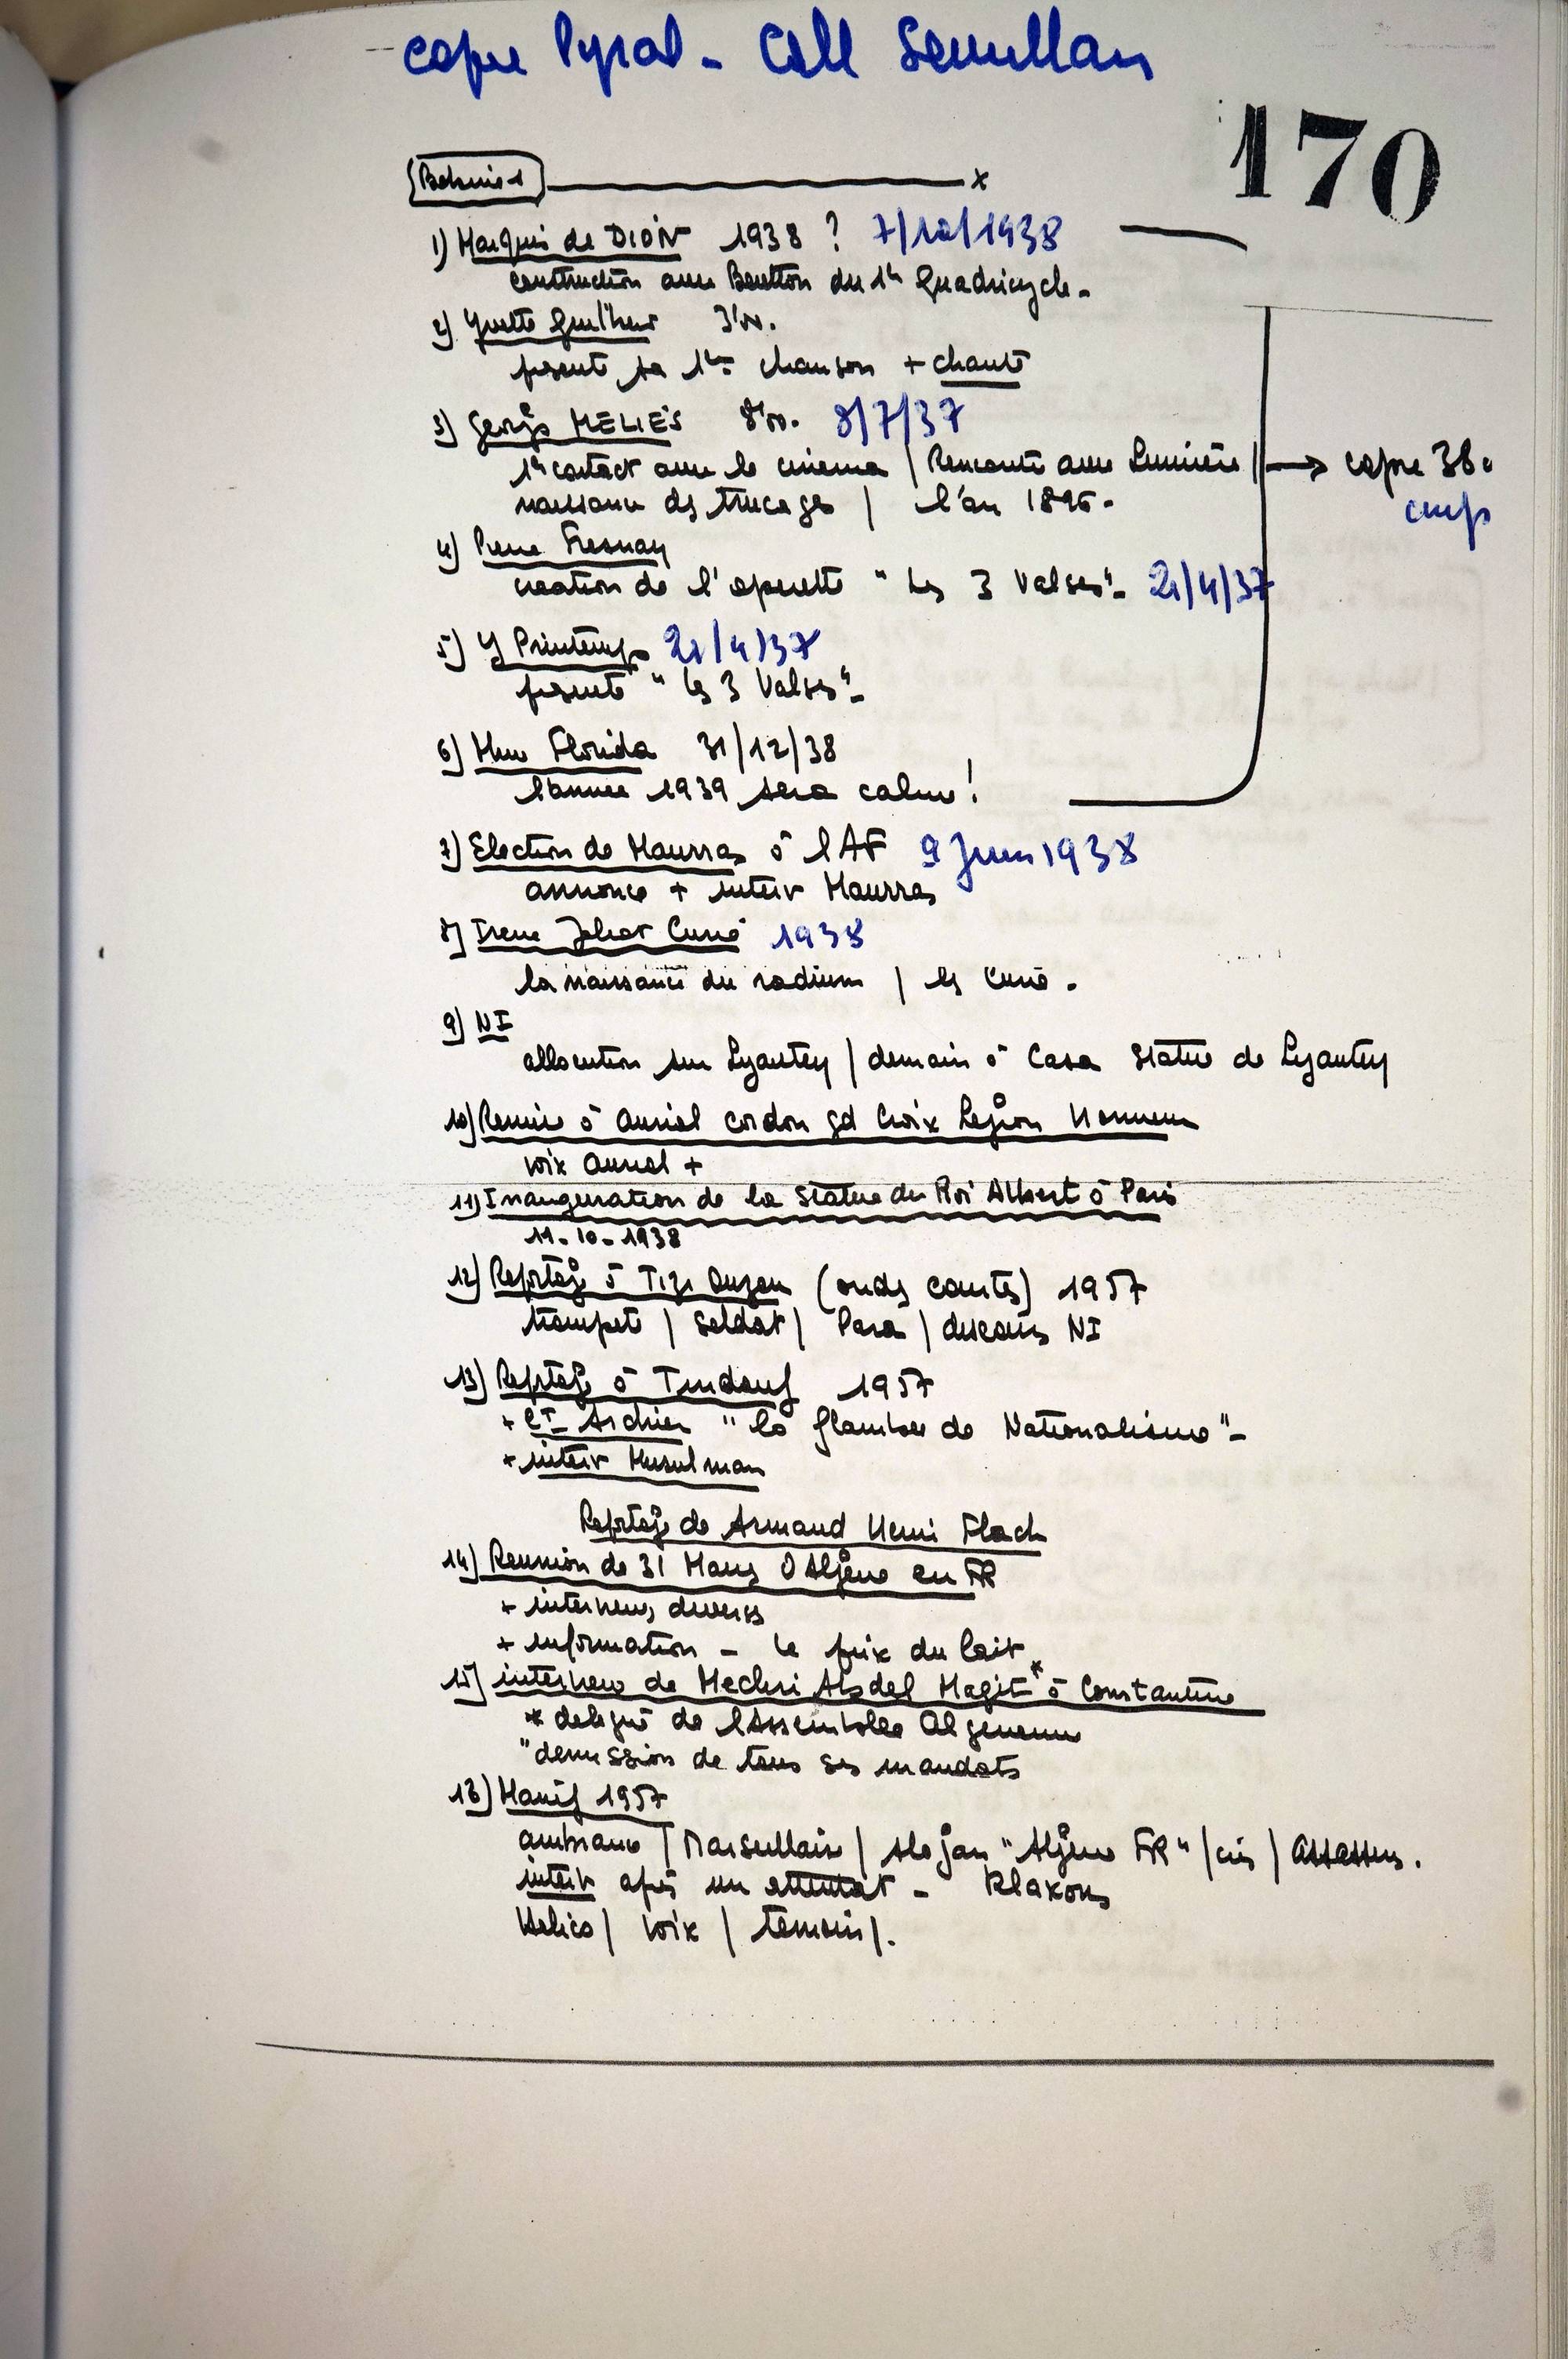 copie Pyral - Coll
170
1) Marquis de DION 1938 ? 7/10/1938
construction avec Boutton du 1er Quadricycle -
2) Yvette Guilber 3'00.
presente sa 1ere chanson + chante
3) Georges MELIES 8'00. 8/7/37
1er contact avec le cinema / Rencontre avec Lumière /
→ copie 38
naissance des trucages / l'an 1896.
4) Pierre Fresnay
creation de l'operette "les 3 Valses" - 21/4/37
5) Y Printemps 21/4/37
presente "les 3 Valses" -
6) Mme Florida 31/12/38
l'annee 1939 sera calme !
7) Election de Maurras à l'AF 9 Juin 1938
annonce + interv Maurras
8) Irene Joliot Curie 1938
la naissance du radium / les Curie .
9) NI
allocution sur Lyautey / demain à Casa Statue de Lyautey
10) Remise à Auriol cordon gd Croix Legion Honneur
voix Auriol +
11) Inauguration de la Statue du Roi Albert à Paris
11-10-1938
12) Reptage à Tizi Ouzou (ondes courtes) 1957
trompete / Soldat / Para / discours NI
13) Reptage à Tindouf 1957
+ "le flambeau de Nationalisme" -
+ interv Musulman
Reptage de Armand Henri Flach
14) Reunion de 31 Maires d'Algerie en FR
+ interviews diverses
+ information - le prix du lait
15) interview de Mechri Abdel Magit * à Constantine
* delegue de l'Assemblee Algerienne
"demission de tous ses mandats
16) Manif 1957
ambiance / Marseillaise / slogan "Algerie FR" / cris / assassins.
interv après un attentat - Klaxons
Helico / voix / temoins /.